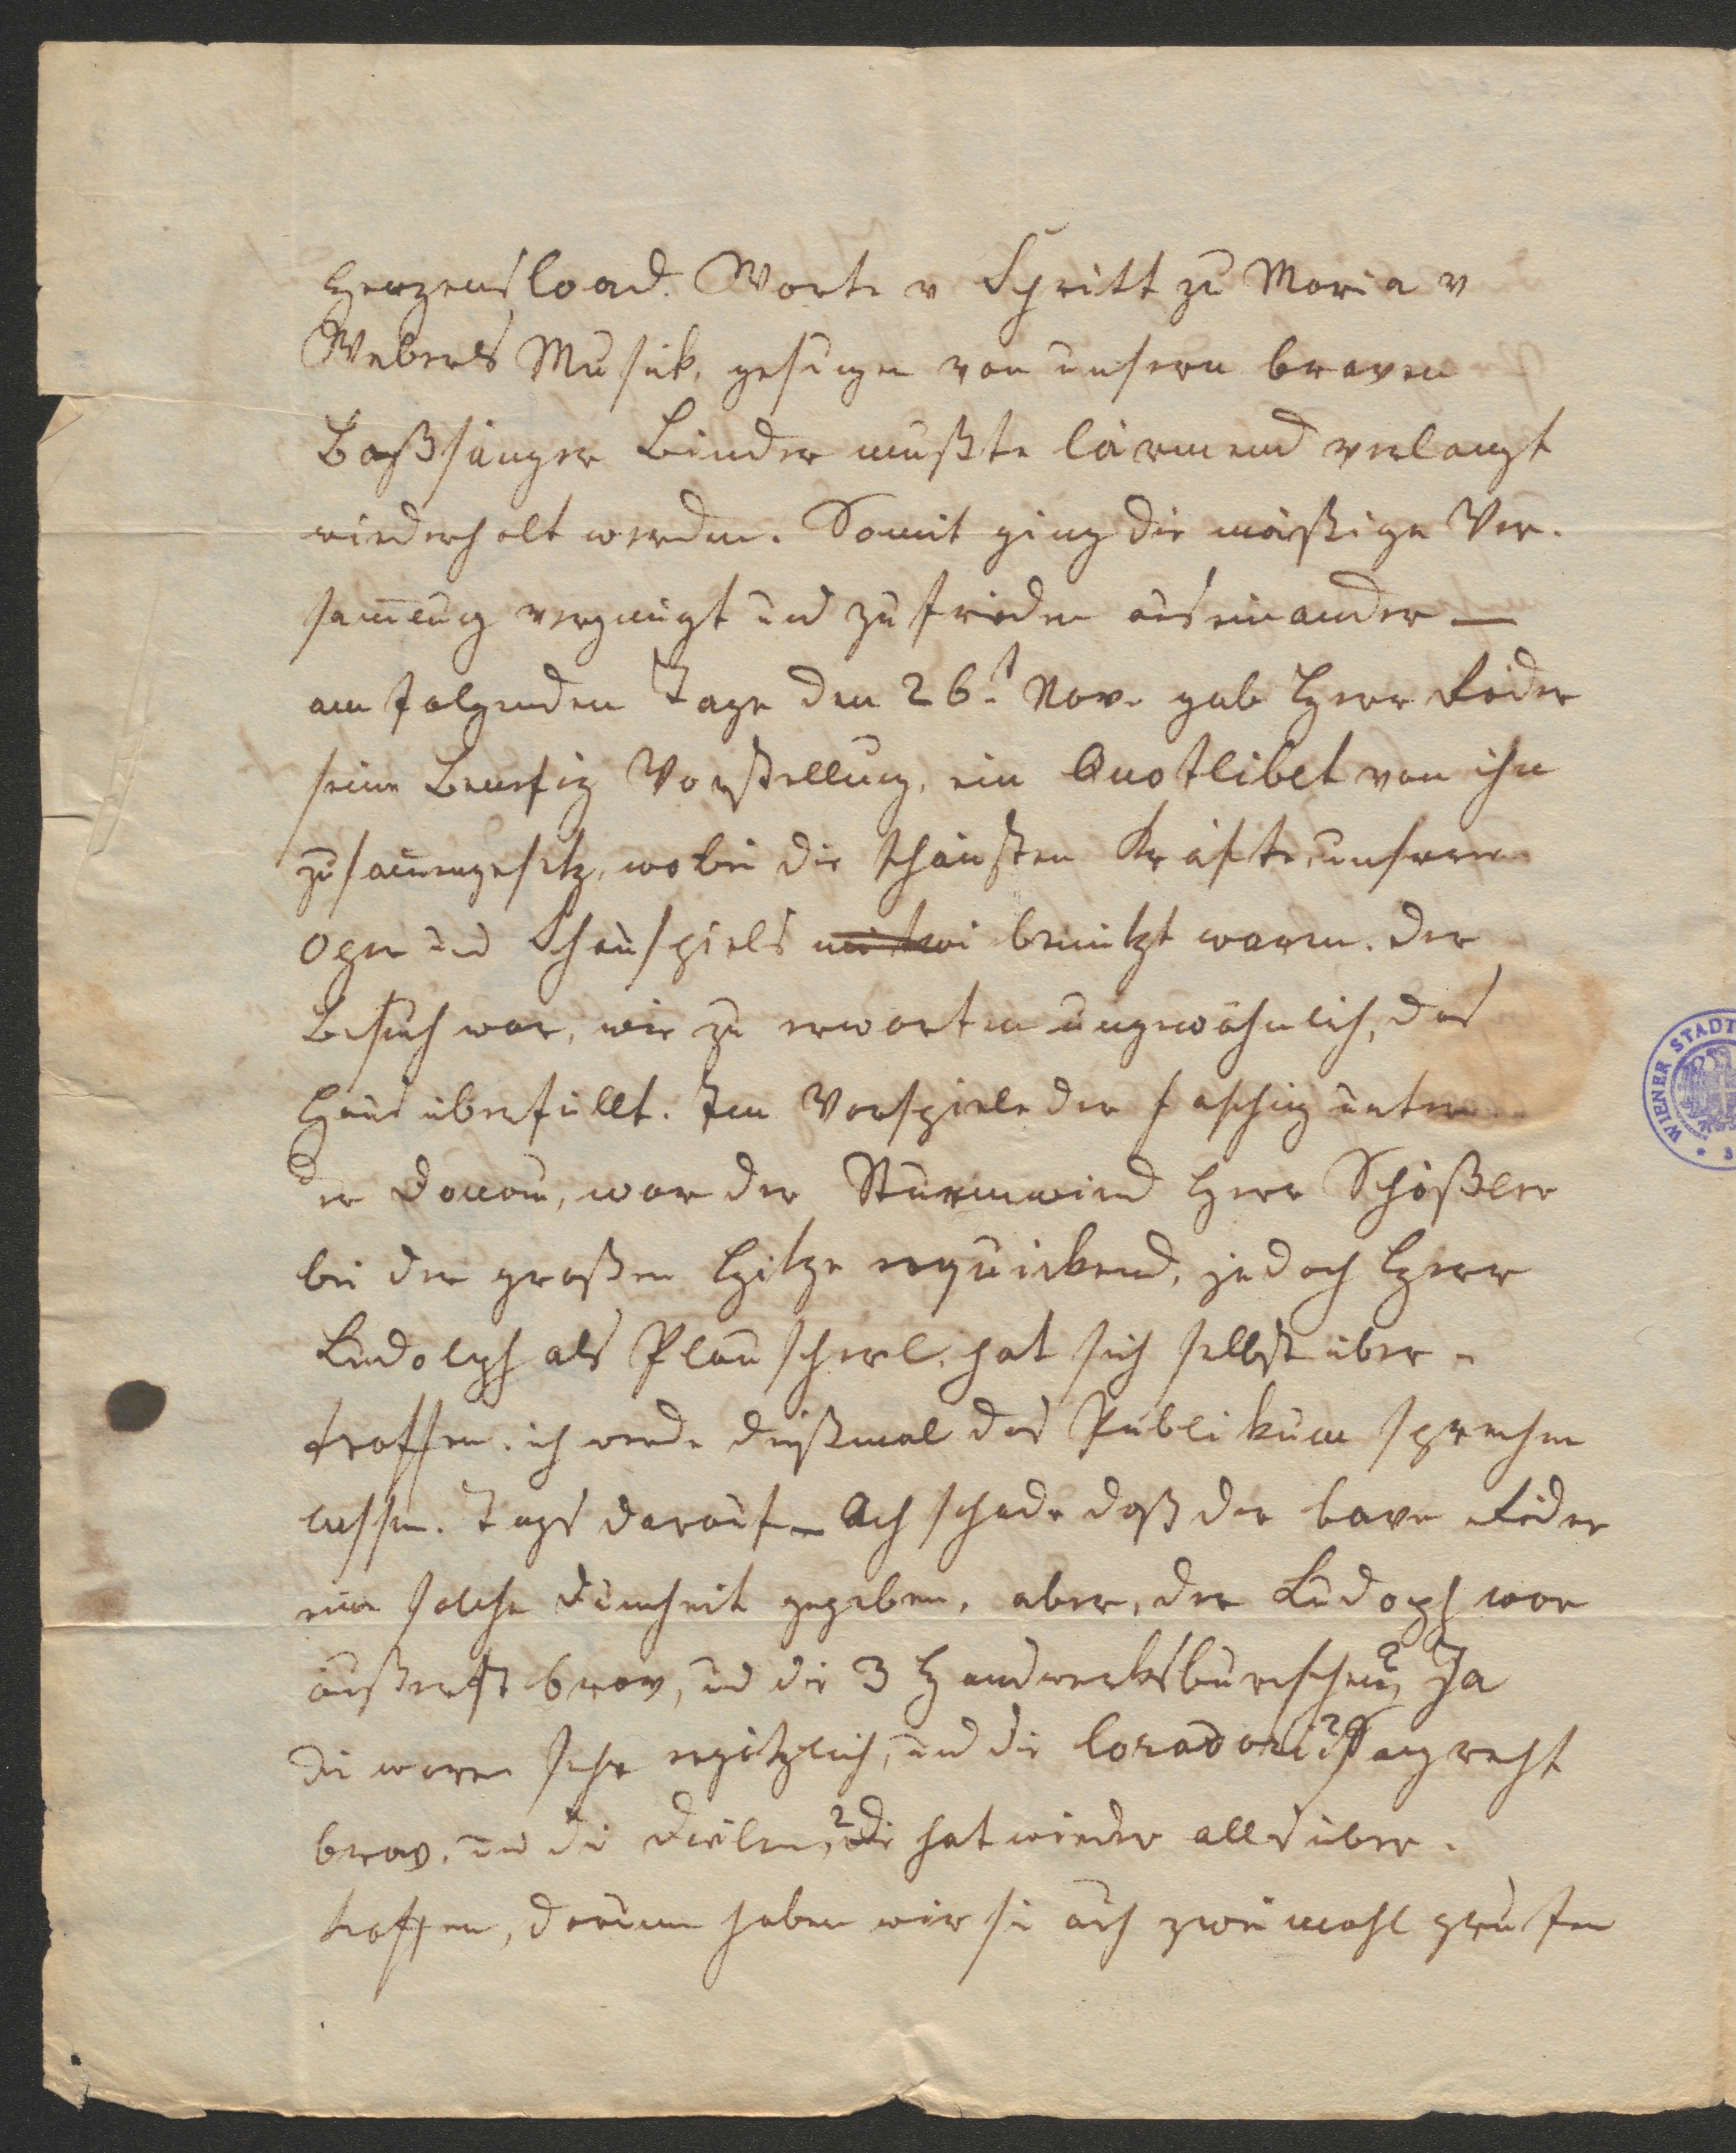 Herzensload. Worte v Schritt zu Maria v
Webers Musik, gesungen von unsern braven
Baßsänger Binder mußte lärmend verlangt
wiederholt werden. Somit ging die mäßige Ver-
sam̅lung vergnügt und zufrieden auseinander —
am folgenden Tage den 26t Nov. gab Herr
seine Benefiz Vorstellung, ein Quotlibet von ihn
zusam̅engesetz, wobei die schönsten Kräfte unserer
Oper und Schauspiels benützt waren. Der
Besuch war, wie zu erwarten ungewöhnlich, das
Haus überfüllt. Im Vorspiele der Fasching unter
der Donau, war der Sturmwind Herr Schößler
bei der großen Hitze erquickend, jedoch Herr
Ludolph als Plauscherl, hat sich selbst über-
troffen. ich werde dießmal das Publikum sprechen
lassen. Tags darauf — Ach schade daß der brave
eine solche Dum̅heit gegeben, aber, der Ludoph war
äußerst brav, und die 3 Handwerksburschen? Ja
die waren sehr ergötzlich, und die sang recht
brav, und die ? die hat wieder alles über-
troffen, darum haben wir sie auch zweimahl gerufen
WIENER STADT